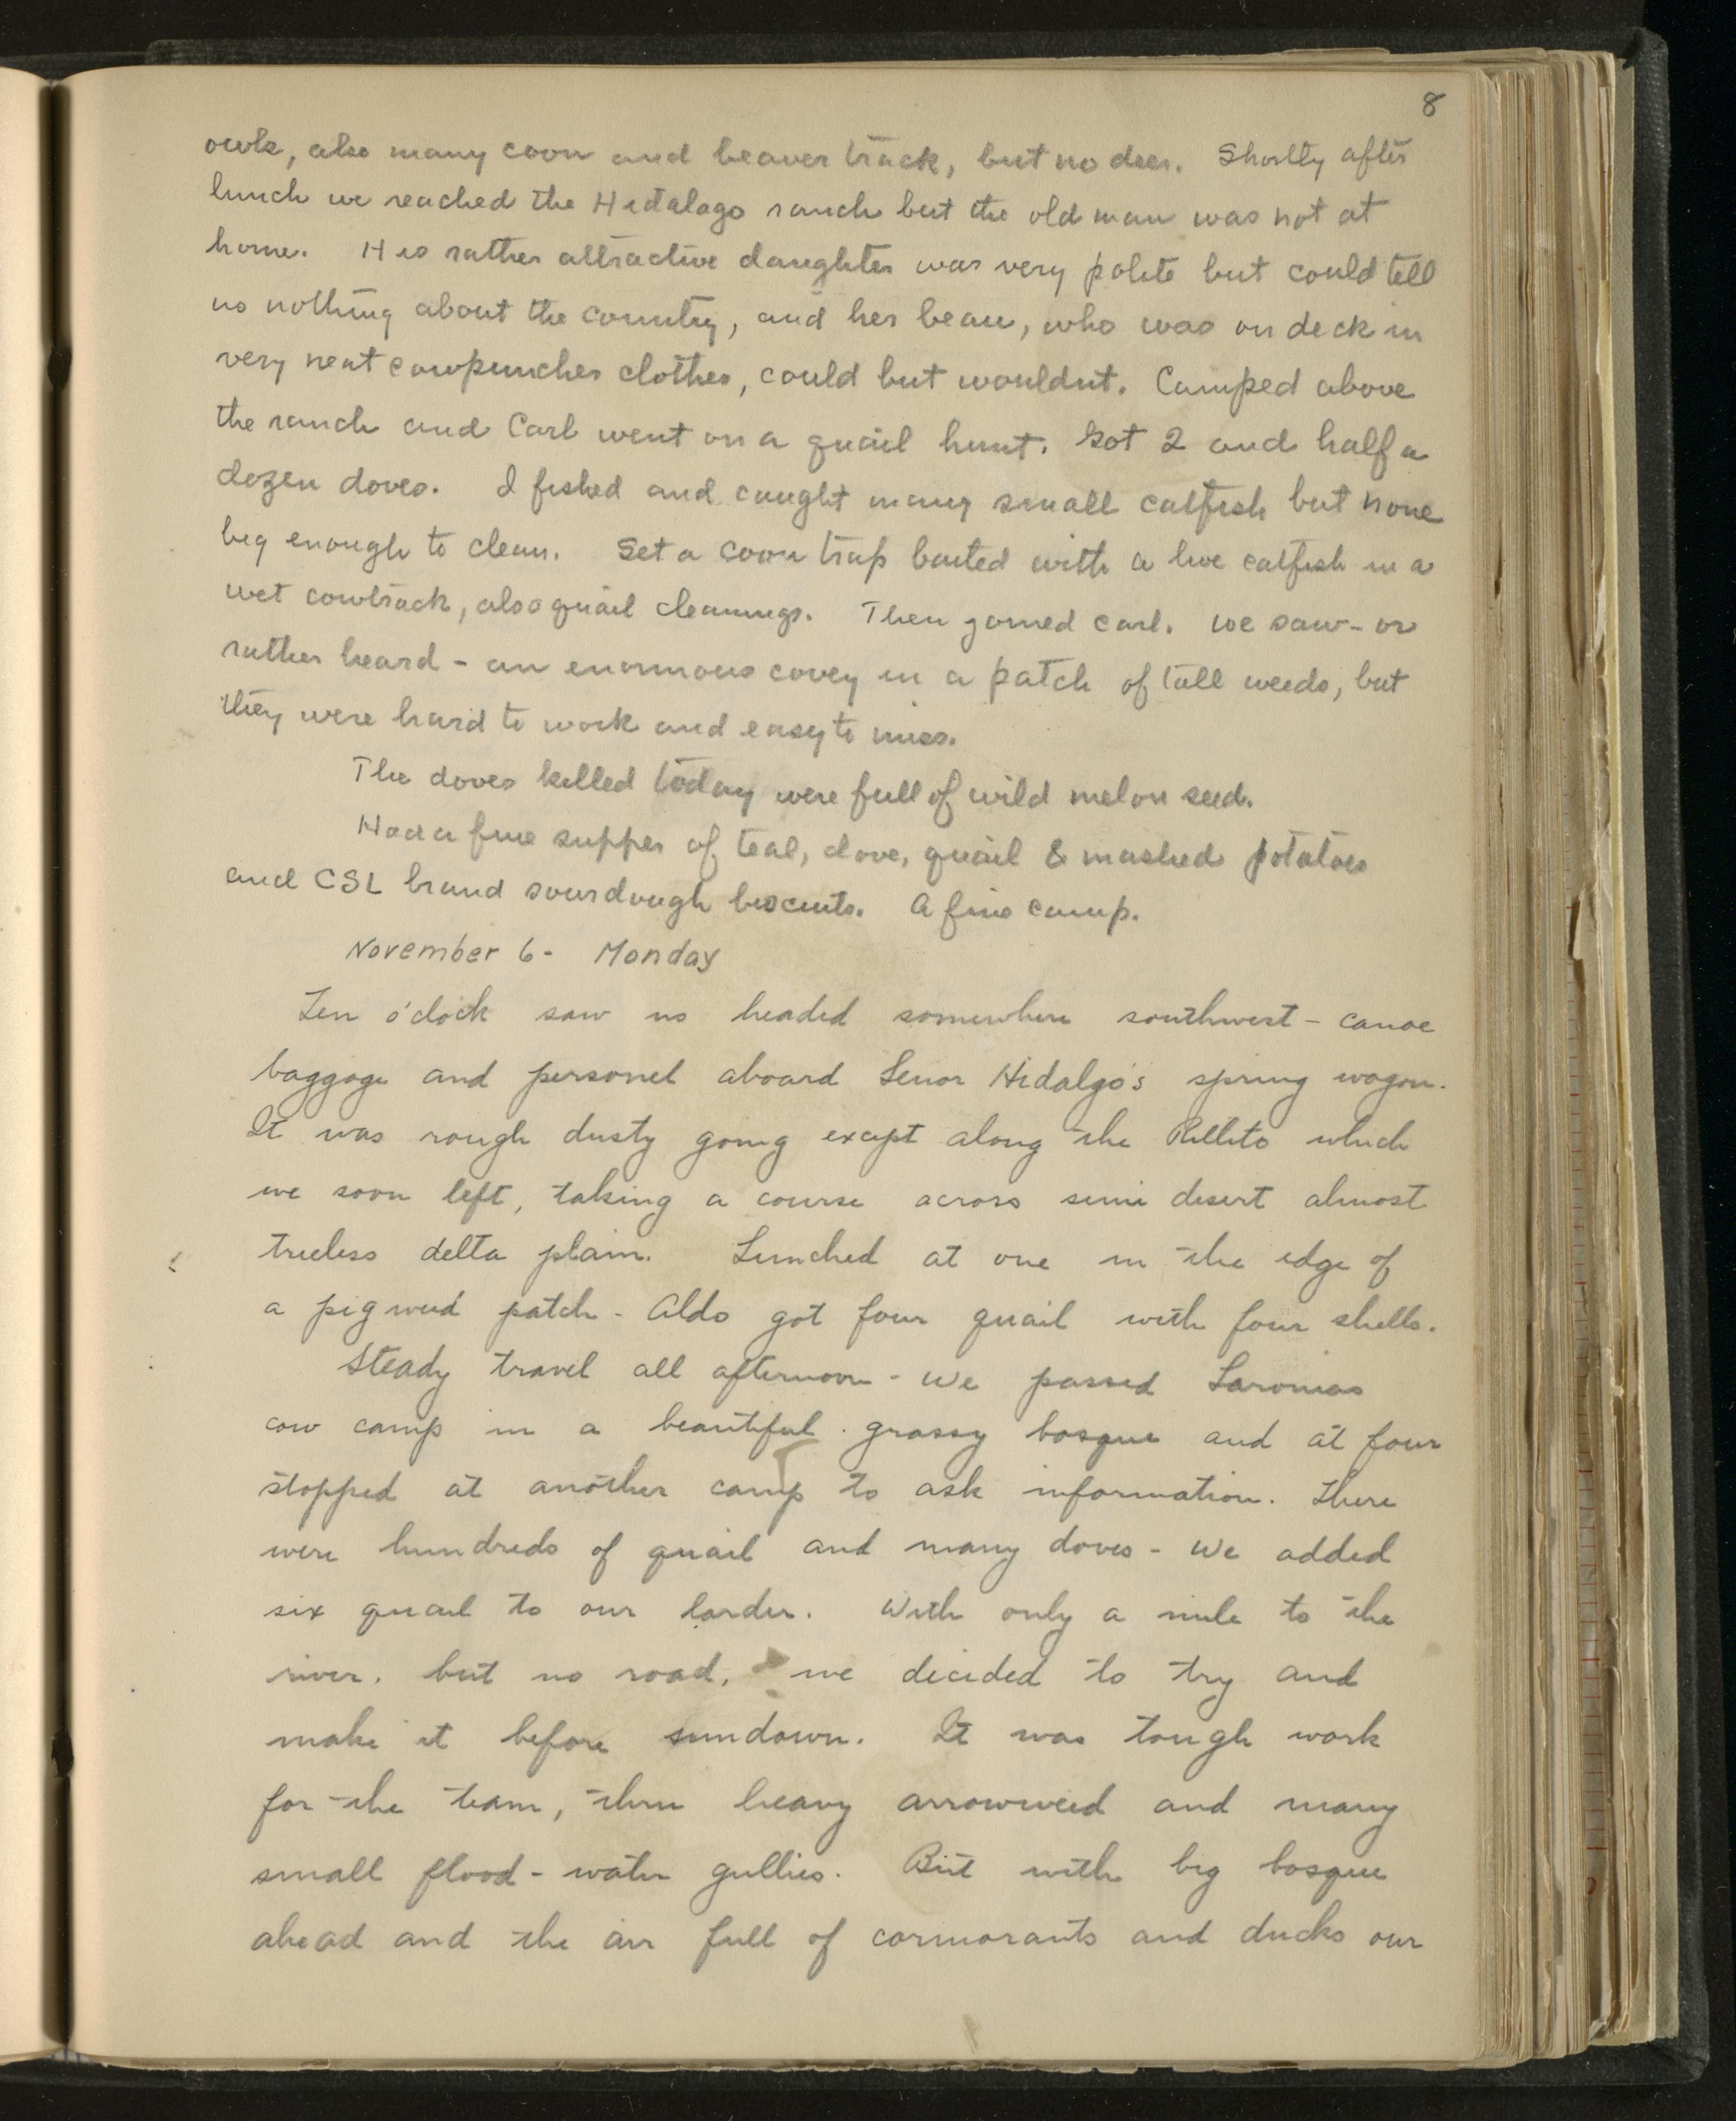 8
owls, also many coon and beaver track, but no deer. Shortly after
lunch we reached the Hidalago ranch but the old man was not at
home. His rather attractive daughter was very polite but could tell
us nothing about the country, and her beau, who was on deck in
very neat cowpuncher clothes, could but wouldnt. Camped above
the ranch and Carl went on a quail hunt. Got 2 and half a
dozen doves. I fished and caught many small catfish but none
big enough to clean. Set a coon trap baited with a live catfish in a
wet cowtrack, also quail cleanings. Then joined Carl. We saw - or
rather heard - an enormous covey in a patch of tall weeds, but
they were hard to work and easy to miss.
The doves killed today were full of wild melon seed.
Had a fine supper of teal, dove, quail & mashed potatoes
and CSL brand sourdough biscuits. A fine camp.
November 6 - Monday
Ten o'clock saw us headed somewhere southwest - canoe
baggage and personel aboard Senor Hidalgo's spring wagon.
It was rough dusty going except along the Rillito which
we soon left, taking a course across semi desert almost
treeless delta plain. Lunched at one in the edge of
a pigweed patch - Aldo got four quail with four shells.
Steady travel all afternoon - We passed
cow camp in a beautiful grassy bosque and at four
stopped at another camp to ask information. There
were hundreds of quail and many doves - We added
six quail to our larder. With only a mile to the
river, but no road, we decided to try and
make it before sundown. It was tough work
for the team, thru heavy arrowweed and many
small flood-water gullies. But with big bosque
ahead and the air full of cormorants and ducks our